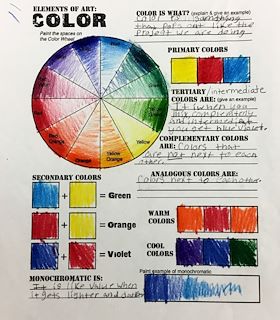 ELEMENTS OF ART:
COLOR
Paint the spaces on
the Color Wheel
COLOR IS WHAT? (explain & give an example)
Color is something
that pops out like the
project we are doing
PRIMARY COLORS
TERTIARY / intermediate
COLORS ARE: (give an example)
It is when you
mix
and intermediat
you get blueviolet.
COMPLEMENTARY COLORS
ARE: Colors that
are not next to each
other.
Red
Orange
Orange
Yellow
Orange
Yellow
Yellow
Green
SECONDARY COLORS
+ = Green
+ = Orange
+ = Violet
ANALOGOUS COLORS ARE:
Colors next to eachother
WARM
COLORS
COOL
COLORS
MONOCHROMATIC IS:
It is like value when
it gets lighter and darker
Paint example of monochromatic